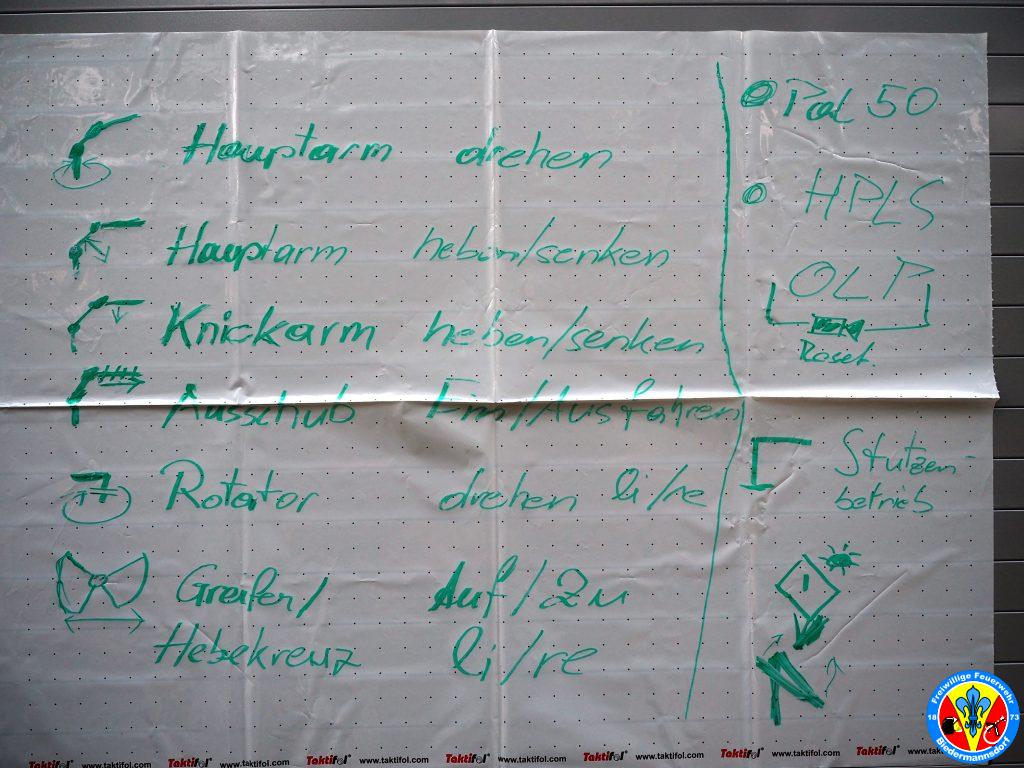 Hauptarm drehen
Hauptarm heben/senken
Knickarm heben/senken
Ausschub Ein/Ausfahren
Rotator drehen li/re
Greifer/ Auf/Zu
Hebekreuz li/re
Pal 50
HPLS
OLP
Stützen-
betrieb
Taktifol www.taktifol.com Taktifol www.taktifol.com Taktifol www.taktifol.com Taktifol www.taktifol.com Taktifol www.taktifol.com Taktifol www.taktifol.com Taktifol
Freiwillige Feuerwehr
18 73
Biedermannsdorf